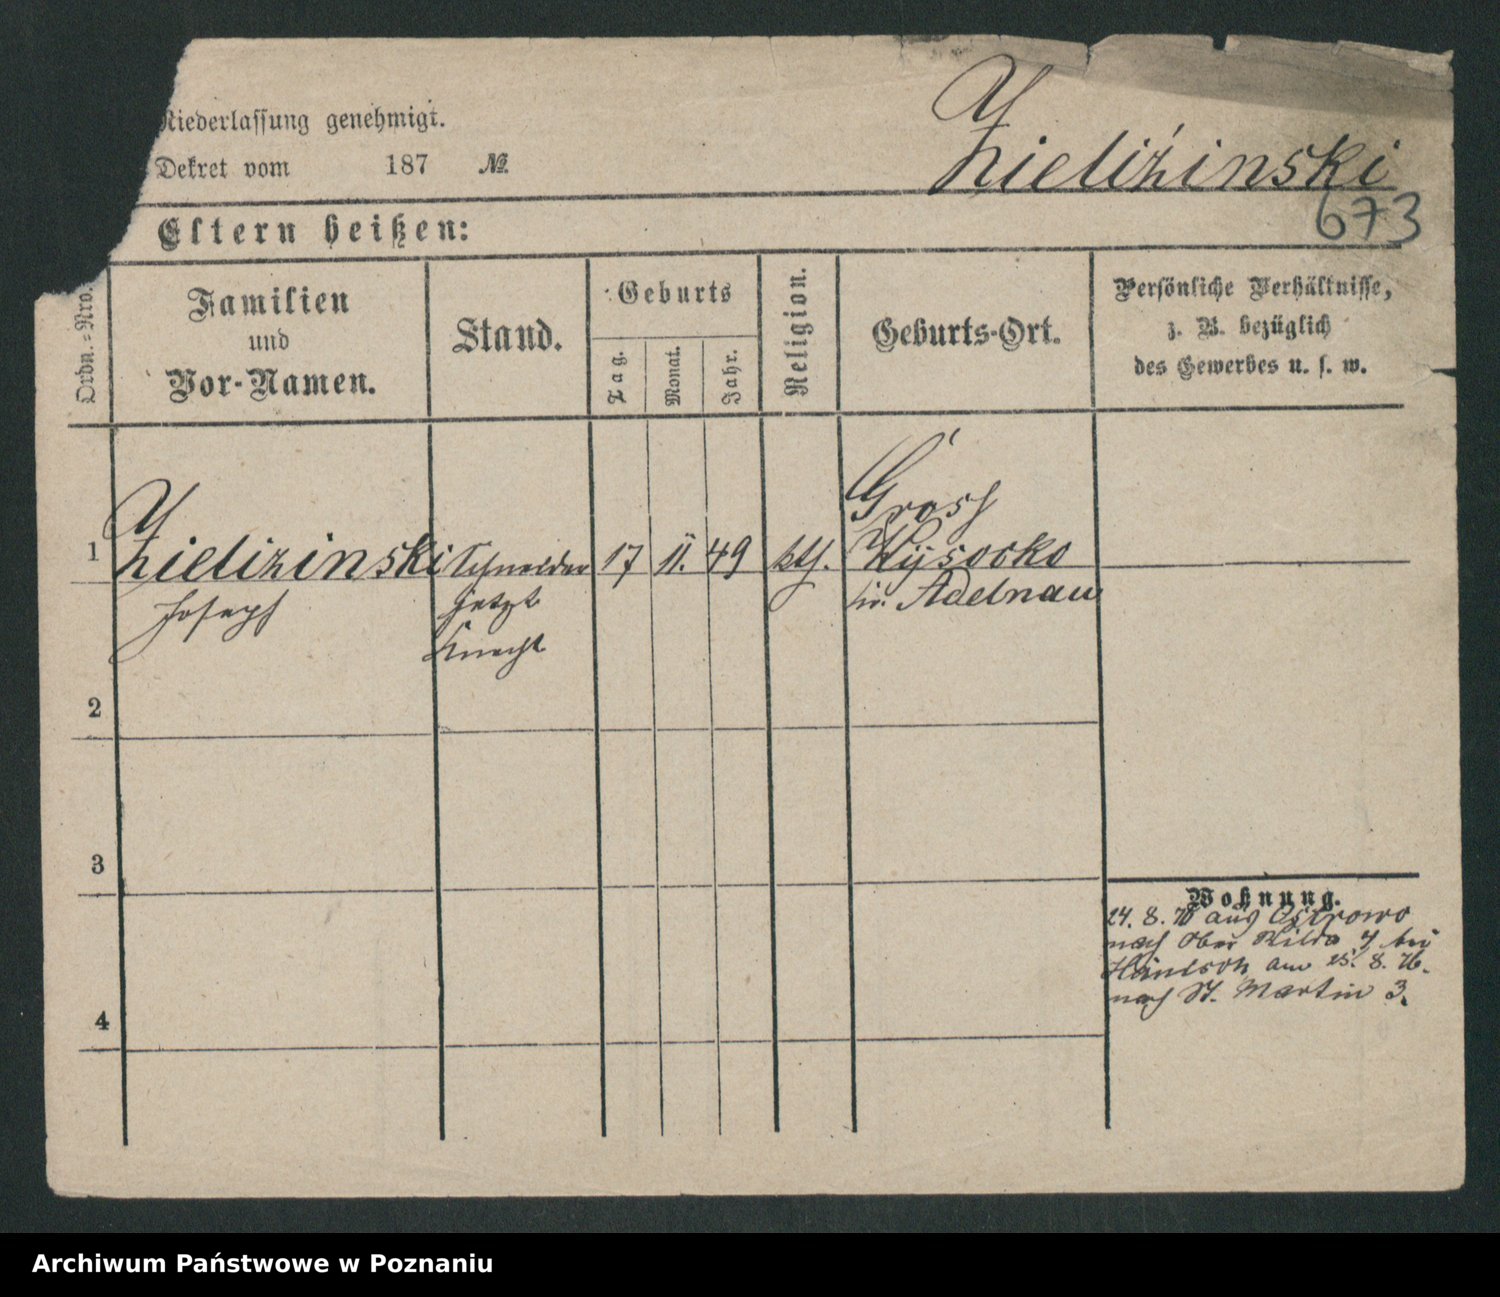 Niederlassung genehmigt.
Dekret vom 187 №
Zieliźinski
673
Eltern heißen:
Ordn.-Nro.
Familien
und
Vor-Namen.
Stand.
Geburts
Tag.
Monat.
Jahr.
Religion.
Geburts-Ort.
Persönliche Verhältnisse,
z. B. bezüglich
des Gewerbes u. s. w.
Gross
1 Zielizinski Schneider 17 11. 49 kth. Wysocko
Joseph jetzt Kr. Adelnau
Knecht
2
3
Wohnung.
24. 8. 76 aus Ostrowo
nach Ober Wilda 7 bei
am 25. 8. 76.
nach St. Martin 3.
4
Archiwum Państwowe w Poznaniu